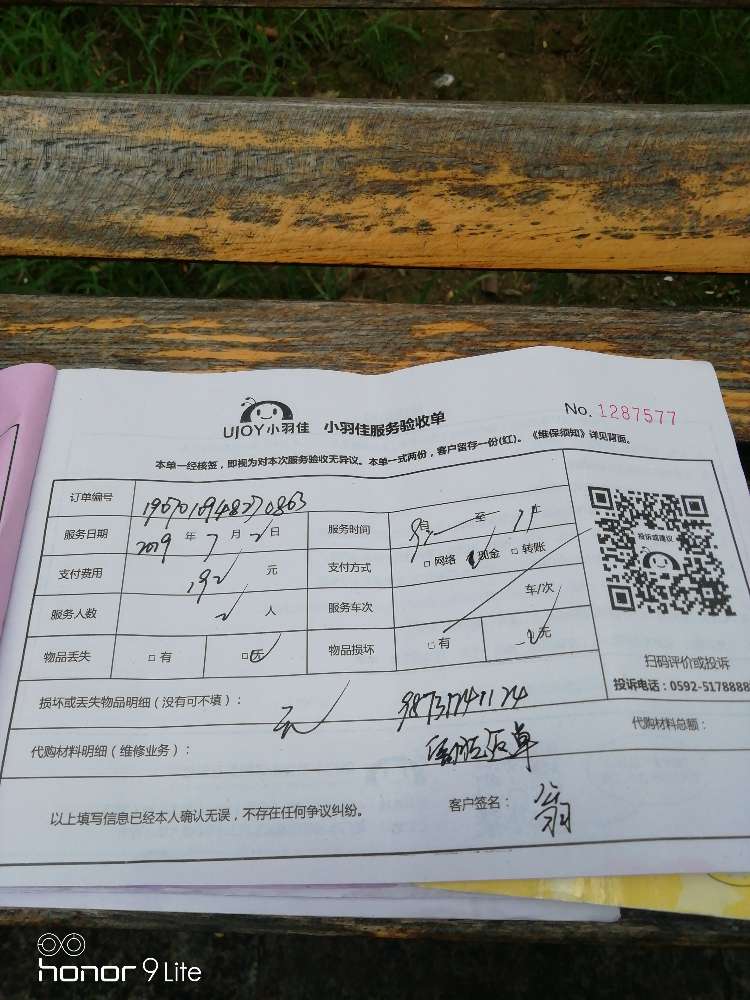 UJOY小羽佳 小羽佳服务验收单 No. 1287577
本单一经核签，即视为对本次服务验收无异议。本单一式两份，客户留存一份(红)。《维保须知》详见背面。
订单编号
服务日期 2019 年 7 月 2 日 服务时间 至
支付费用 192 元 支付方式 □网络 现金 □转账
服务人数 2 人 服务车次 车/次
物品丢失 □有 □无 物品损坏 □有 无
投诉或建议
扫码评价或投诉
投诉电话：0592-5178888
损坏或丢失物品明细（没有可不填）： 无
代购材料明细（维修业务）： 代购材料总额：
以上填写信息已经本人确认无误，不存在任何争议纠纷。 客户签名： 翁
honor 9 Lite